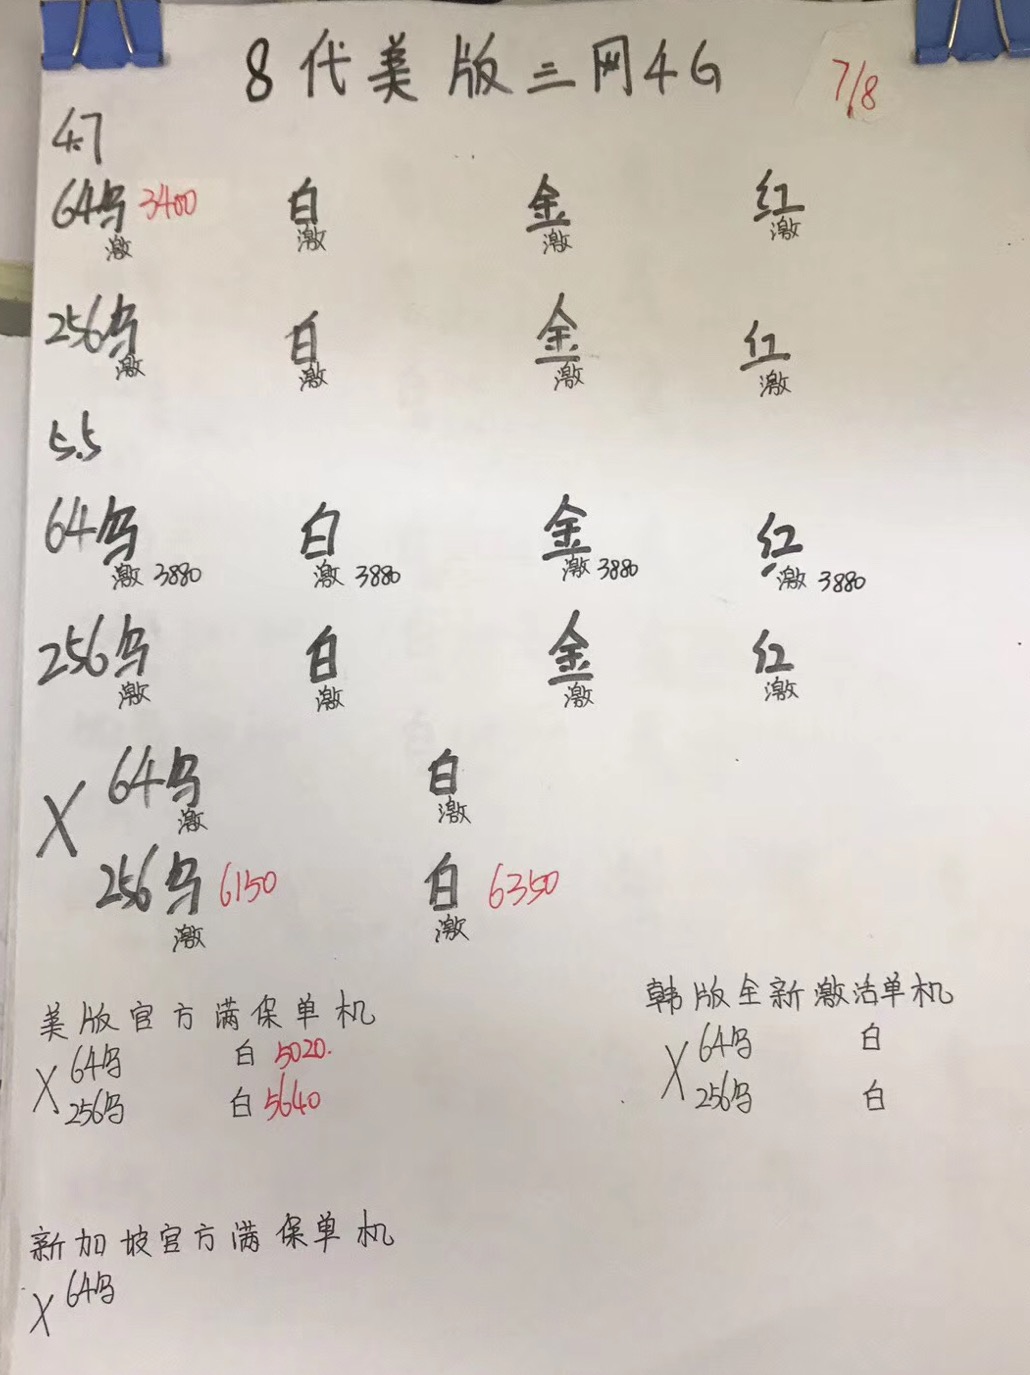 8代美版三网4G 7/8
4.7
64乌 3400 白 金 红
激 激 激 激
256乌 白 金 红
激 激 激 激
5.5
64乌 白 金 红
激 3880 激 3880 激 3880 激 3880
256乌 白 金 红
激 激 激 激
X 64乌 白
激 激
256乌 6150 白 6350
激 激
美版官方满保单机
X 64乌 白 5020.
256乌 白 5640
韩版全新激活单机
X 64乌 白
256乌 白
新加坡官方满保单机
X 64乌